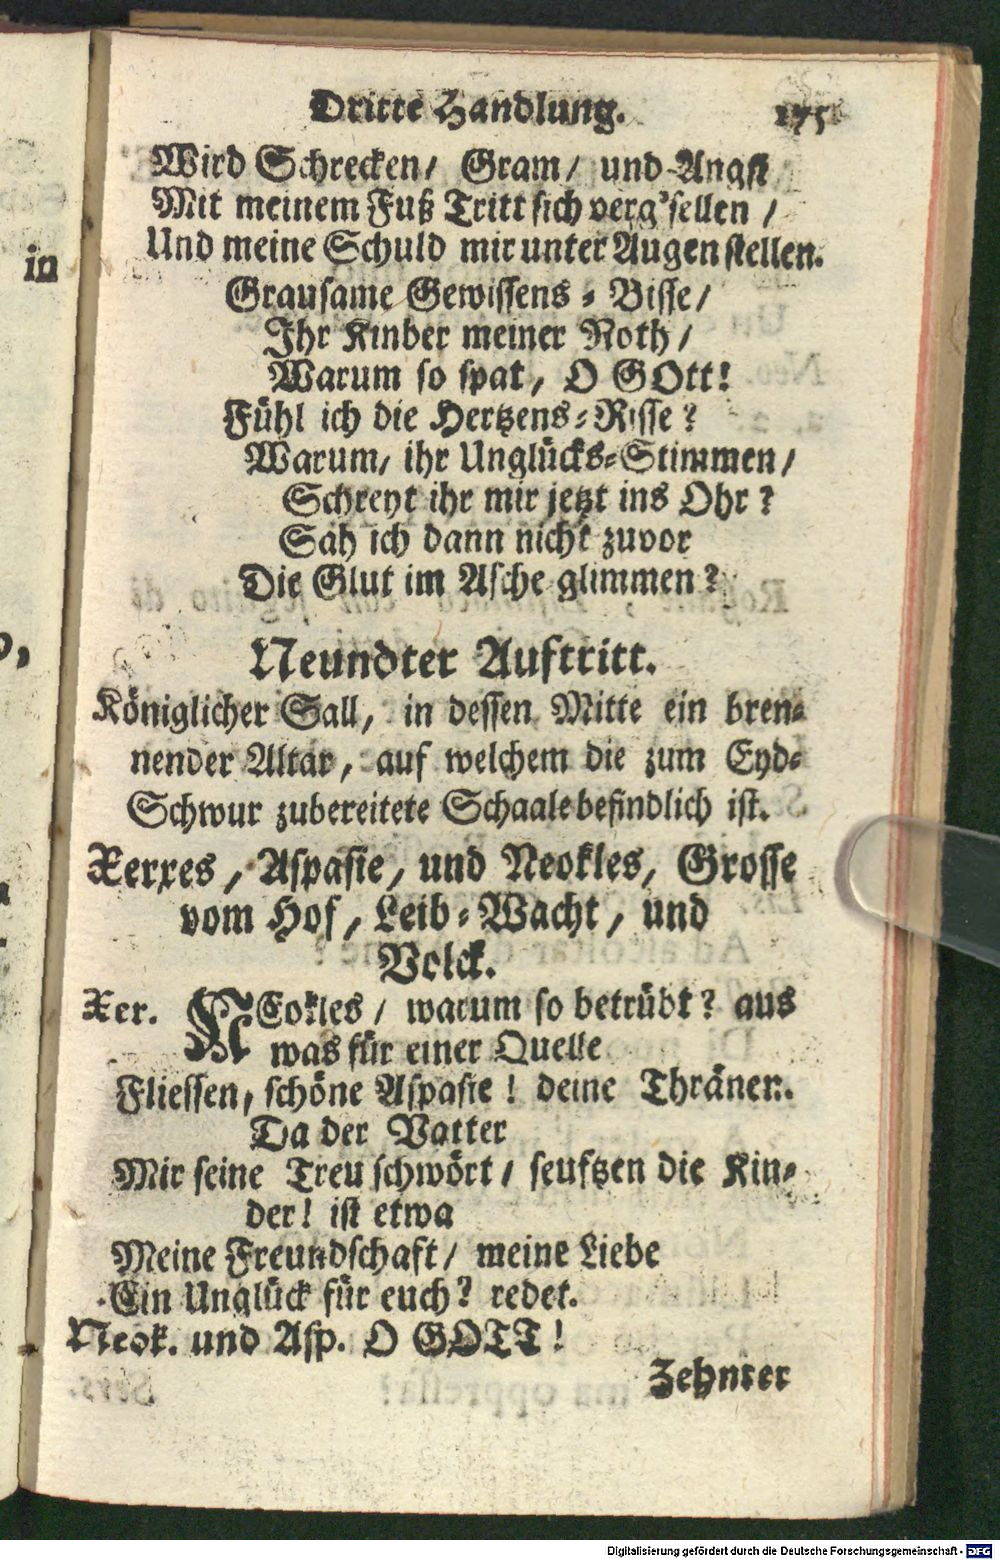 Dritte Handlung. 175
Wird Schrecken/ Gram/ und Angst
Mit meinem Fuß Tritt sich verg'sellen /
Und meine Schuld mir unter Augen stellen.
Grausame Gewissens-Bisse/
Ihr Kinder meiner Noth/
Warum so spat, O GOtt!
Fühl ich die Hertzens-Risse?
Warum, ihr Unglücks-Stimmen/
Schreyt ihr mir jetzt ins Ohr?
Sah ich dann nicht zuvor
Die Glut im Asche glimmen?
Neundter Auftritt.
Königlicher Sall, in dessen Mitte ein bren-
nender Altar, auf welchem die zum Eyd-
Schwur zubereitete Schaale befindlich ist.
Xerxes, Aspasie, und Neokles, Grosse
vom Hof, Leib-Wacht, und
Volck.
Xer. NEokles/ warum so betrübt? aus
was für einer Quelle
Fliessen, schöne Aspasie! deine Thränen.
Da der Vatter
Mir seine Treu schwört/ seuftzen die Kin-
der! ist etwa
Meine Freundschaft/ meine Liebe
Ein Unglück für euch? redet.
Neok. und Asp. O GOTT!
Zehnter
in
Digitalisierung gefördert durch die Deutsche Forschungsgemeinschaft - DFG